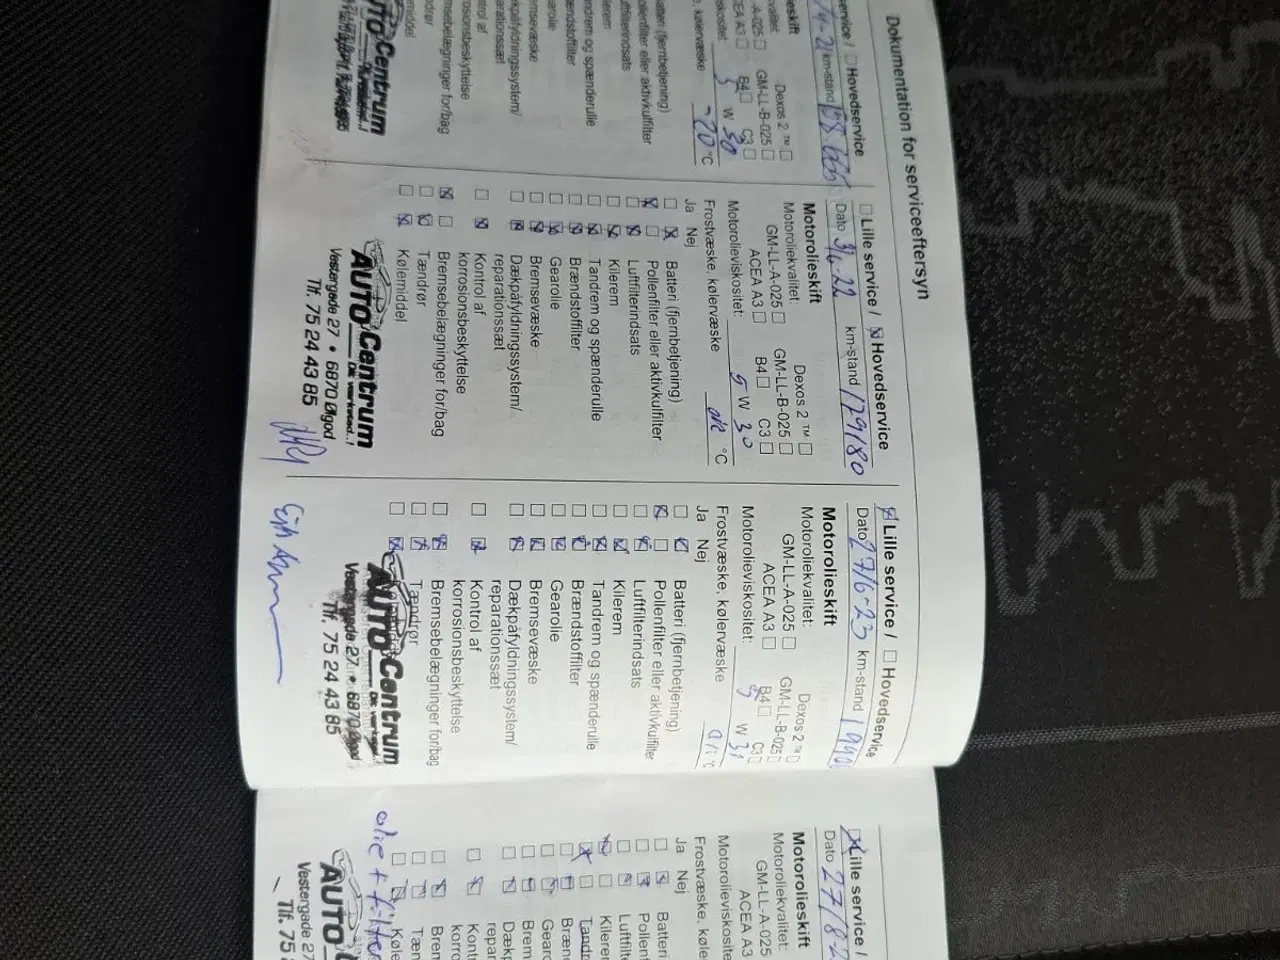 Dokumentation for serviceeftersyn
service / ☐ Hovedservice
km-stand 158.666
Dexos 2 ™ ☐
GM-LL-B-025 ☐
ACEA A3 ☐ B4 ☐ C3 ☐
5 W 30
kølervæske -20 °C
(fjernbetjening)
eller aktivkulfilter
og spænderulle
korrosionsbeskyttelse
Bremsebelægninger for/bag
AUTO Centrum
☐ Lille service / ☒ Hovedservice
Dato 3/6-22 km-stand 179180
Motorolieskift
Motoroliekvalitet: Dexos 2 ™ ☐
GM-LL-A-025 ☐ GM-LL-B-025 ☐
ACEA A3 ☐ B4 ☐ C3 ☐
Motorolieviskositet: 5 W 30
Frostvæske, kølervæske ok °C
Ja Nej
☐ ☒ Batteri (fjernbetjening)
☒ ☐ Pollenfilter eller aktivkulfilter
☐ ☒ Luftfilterindsats
☐ ☒ Kilerem
☐ ☒ Tandrem og spænderulle
☐ ☒ Brændstoffilter
☐ ☒ Gearolie
☐ ☒ Bremsevæske
☐ ☒ Dækpåfyldningssystem/
reparationssæt
☐ ☒ Kontrol af
korrosionsbeskyttelse
☒ ☐ Bremsebelægninger for/bag
☐ ☒ Tændrør
☐ ☒ Kølemiddel
AUTO Centrum
Dit værksted..!
Vestergade 27 • 6870 Ølgod
Tlf. 75 24 43 85
☒ Lille service / ☐ Hovedservice
Dato 27/6-23 km-stand
Motorolieskift
Motoroliekvalitet: Dexos 2 ™ ☐
GM-LL-A-025 ☐ GM-LL-B-025 ☐
ACEA A3 ☐ B4 ☐ C3 ☐
Motorolieviskositet: 5 W 30
Frostvæske, kølervæske °C
Ja Nej
☐ ☒ Batteri (fjernbetjening)
☒ ☐ Pollenfilter eller aktivkulfilter
☐ ☒ Luftfilterindsats
☐ ☒ Kilerem
☐ ☒ Tandrem og spænderulle
☐ ☒ Brændstoffilter
☐ ☒ Gearolie
☐ ☒ Bremsevæske
☐ ☒ Dækpåfyldningssystem/
reparationssæt
☐ ☒ Kontrol af
korrosionsbeskyttelse
☐ ☒ Bremsebelægninger for/bag
☐ ☒ Tændrør
AUTO Centrum
Vestergade 27 • 6870 Ølgod
Tlf. 75 24 43 85
☒ Lille service /
Dato 27/8-2
Motorolieskift
Motoroliekvalitet:
GM-LL-A-025
ACEA A3
Motorolieviskosite
Frostvæske, køle
Ja Nej
☐ ☒ Batteri
☐ ☒ Pollenf
☐ ☒ Luftfilt
☒ ☐ Kilerer
☒ ☐ Tandr
☐ ☒ Bræn
☐ ☒ Gearo
☐ ☒ Brem
☐ ☒ Dækp
repar
☐ ☒ Kont
korro
☐ ☒ Bren
☐ ☒ Tæn
☐ ☒ Køle
olie + filter
AUTO
Vestergade 27
Tlf. 75